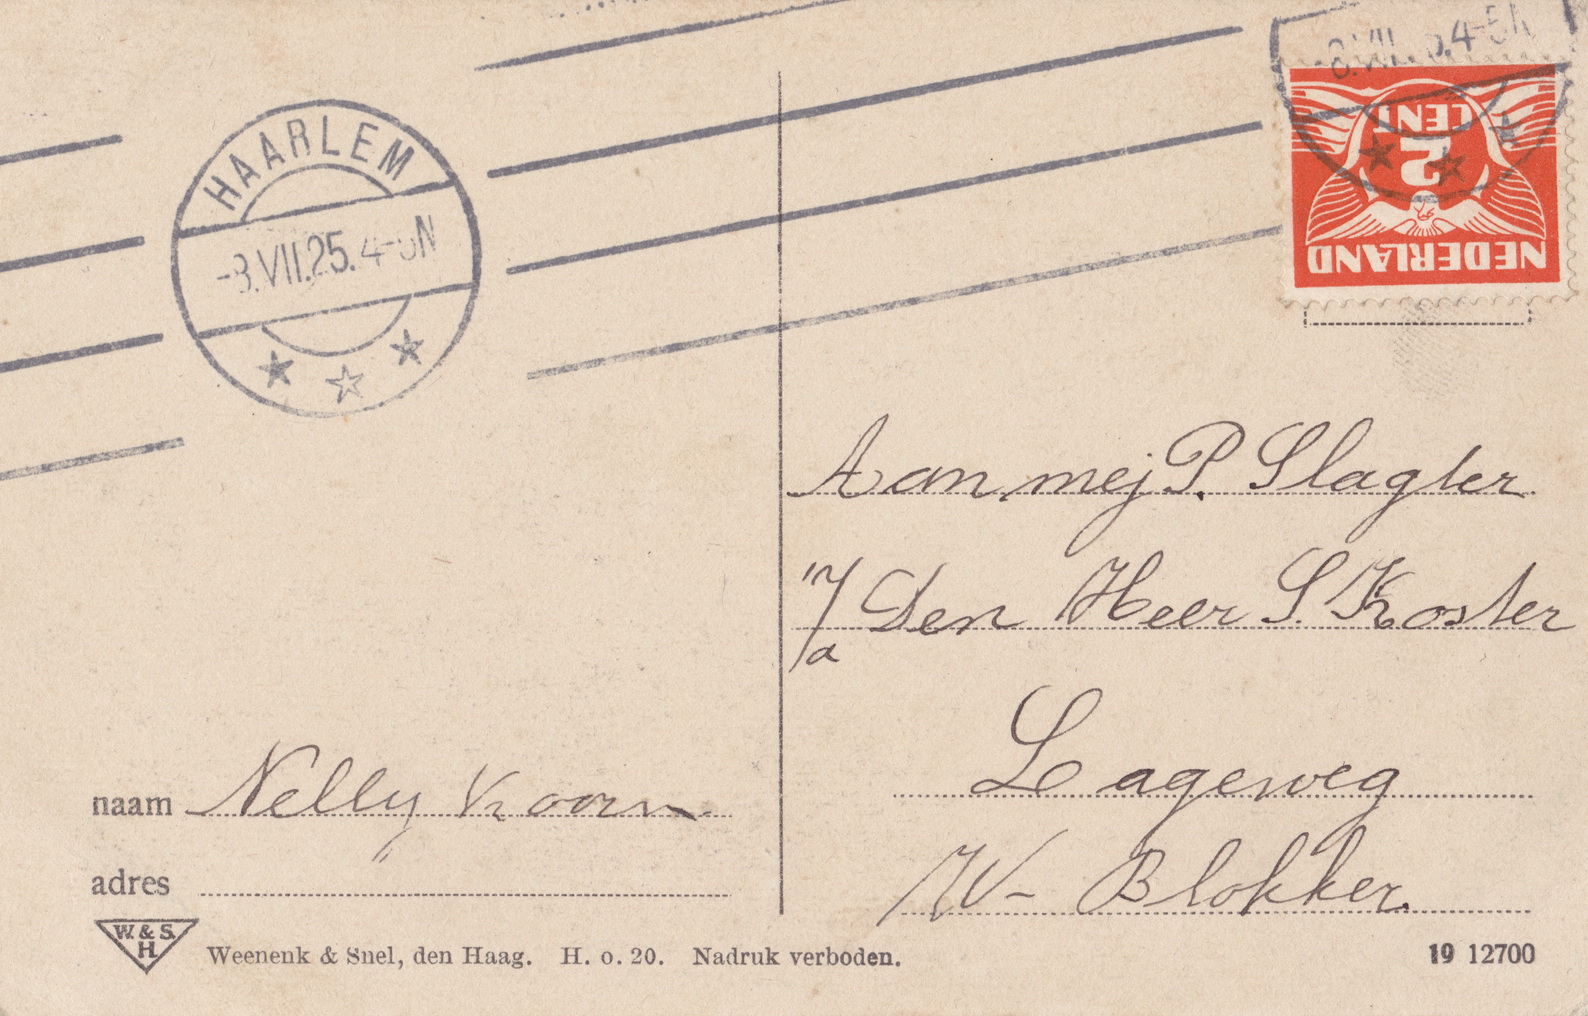 HAARLEM
-8.VII.25.4-5N
8.VII. 4-5N
NEDERLAND
2
CENT
Aan mej P. Slagter
p/a Den Heer S. Koster
Lageweg
W- Blokker.
naam Nelly Koorn
adres
W. & S.
H.
Weenenk & Snel, den Haag. H. o. 20. Nadruk verboden.
19 12700